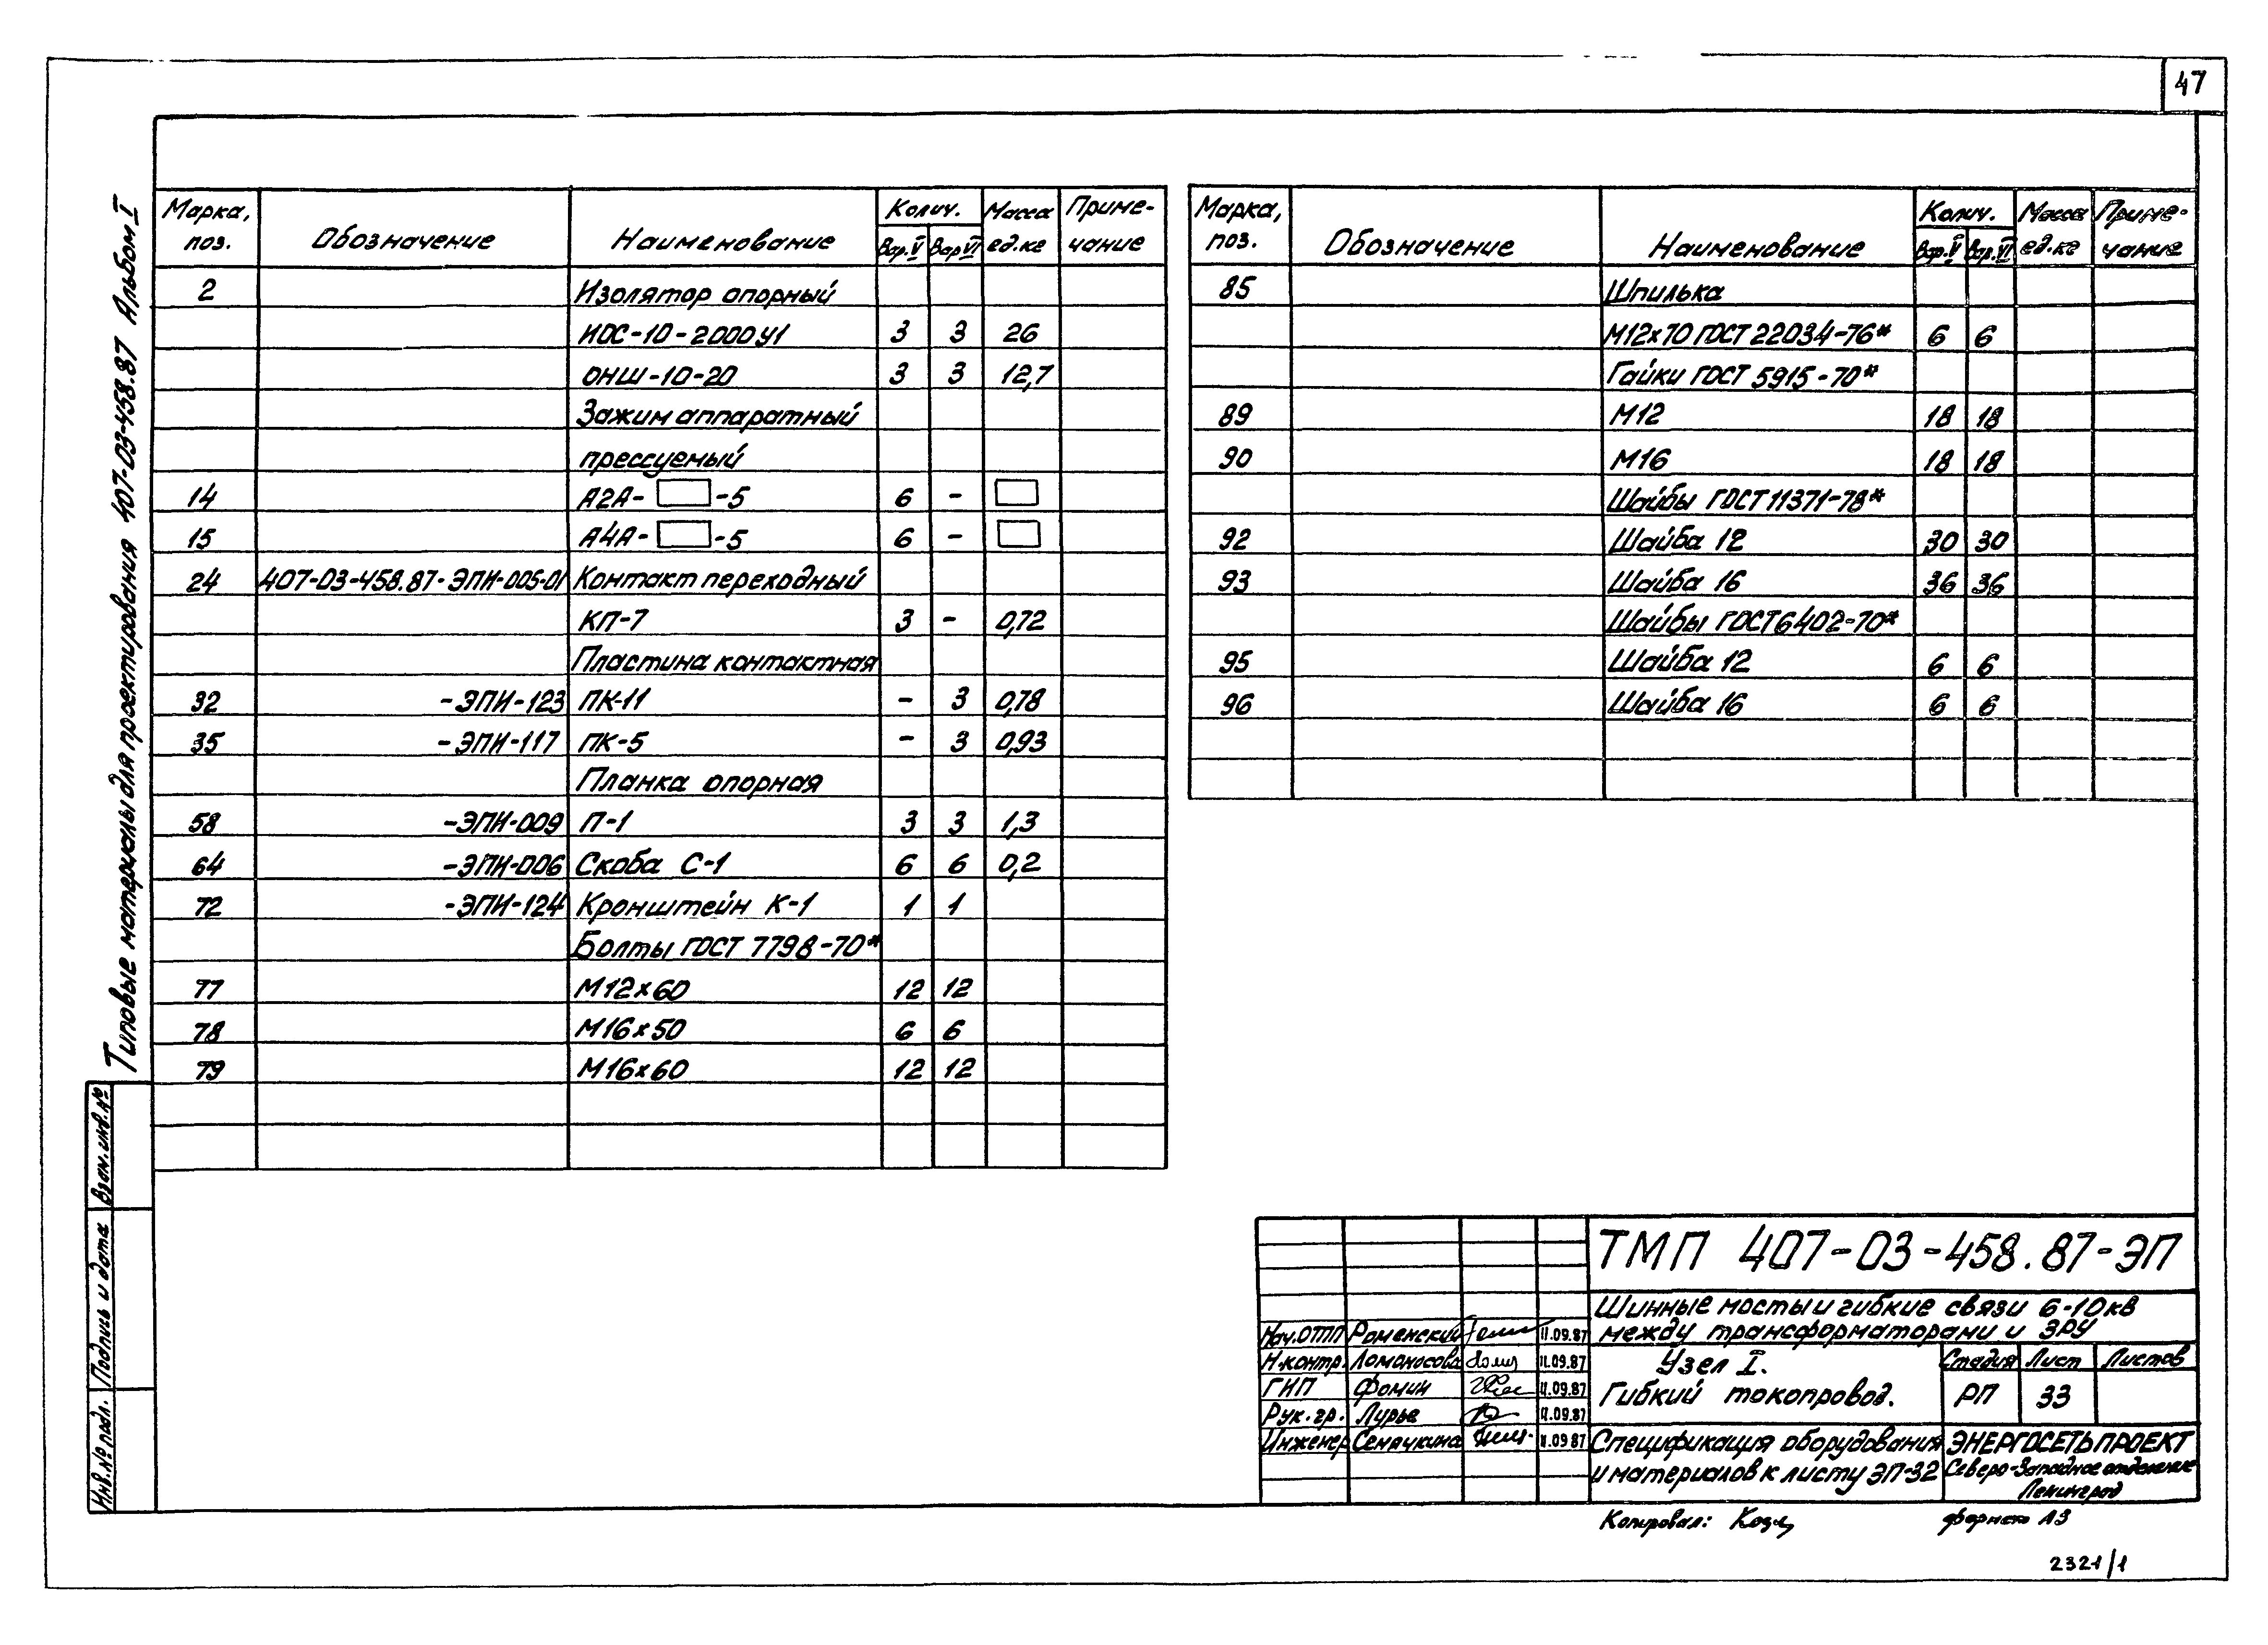 47
Типовые материалы для проектирования 407-03-458.87 Альбом I
Марка, поз. Обозначение Наименование Колич. Вар.V Вар VI Масса ед.кг Приме-чание
2 Изолятор опорный
ИОС-10-2000У1 3 3 26
ОНШ-10-20 3 3 12,7
Зажим аппаратный
прессуемый
14 А2А- -5 6 -
15 А4А- -5 6 -
24 407-03-458.87-ЭПИ-005-01 Контакт переходный
КП-7 3 - 0,72
Пластина контактная
32 -ЭПИ-123 ПК-11 - 3 0,78
35 -ЭПИ-117 ПК-5 - 3 0,93
Планка опорная
58 -ЭПИ-009 П-1 3 3 1,3
64 -ЭПИ-006 Скоба С-1 6 6 0,2
72 -ЭПИ-124 Кронштейн К-1 1 1
Болты ГОСТ 7798-70*
77 М12х60 12 12
78 М16х50 6 6
79 М16х60 12 12
Марка, поз. Обозначение Наименование Колич. Вар.V Вар.VI Масса ед.кг Приме-чание
85 Шпилька
М12х70 ГОСТ 22034-76* 6 6
Гайки ГОСТ 5915-70*
89 М12 18 18
90 М16 18 18
Шайбы ГОСТ 11371-78*
92 Шайба 12 30 30
93 Шайба 16 36 36
Шайбы ГОСТ 6402-70*
95 Шайба 12 6 6
96 Шайба 16 6 6
Взам.инв.№
Подпись и дата
Инв.№ подл.
ТМП 407-03-458.87-ЭП
Шинные мосты и гибкие связи 6-10кв
между трансформаторами и ЗРУ
Нач.ОТП Роменский 11.09.87
Н.контр. Ломоносова 11.09.87
ГИП Фомин 11.09.87
Рук.гр. Лурье 11.09.87
Инженер Семячкина 11.09.87
Узел I.
Гибкий токопровод.
Стадия Лист Листов
РП 33
Спецификация оборудования
и материалов к листу ЭП-32
ЭНЕРГОСЕТЬПРОЕКТ
Северо-Западное отделение
Ленинград
Копировал: формат А3
2321/1